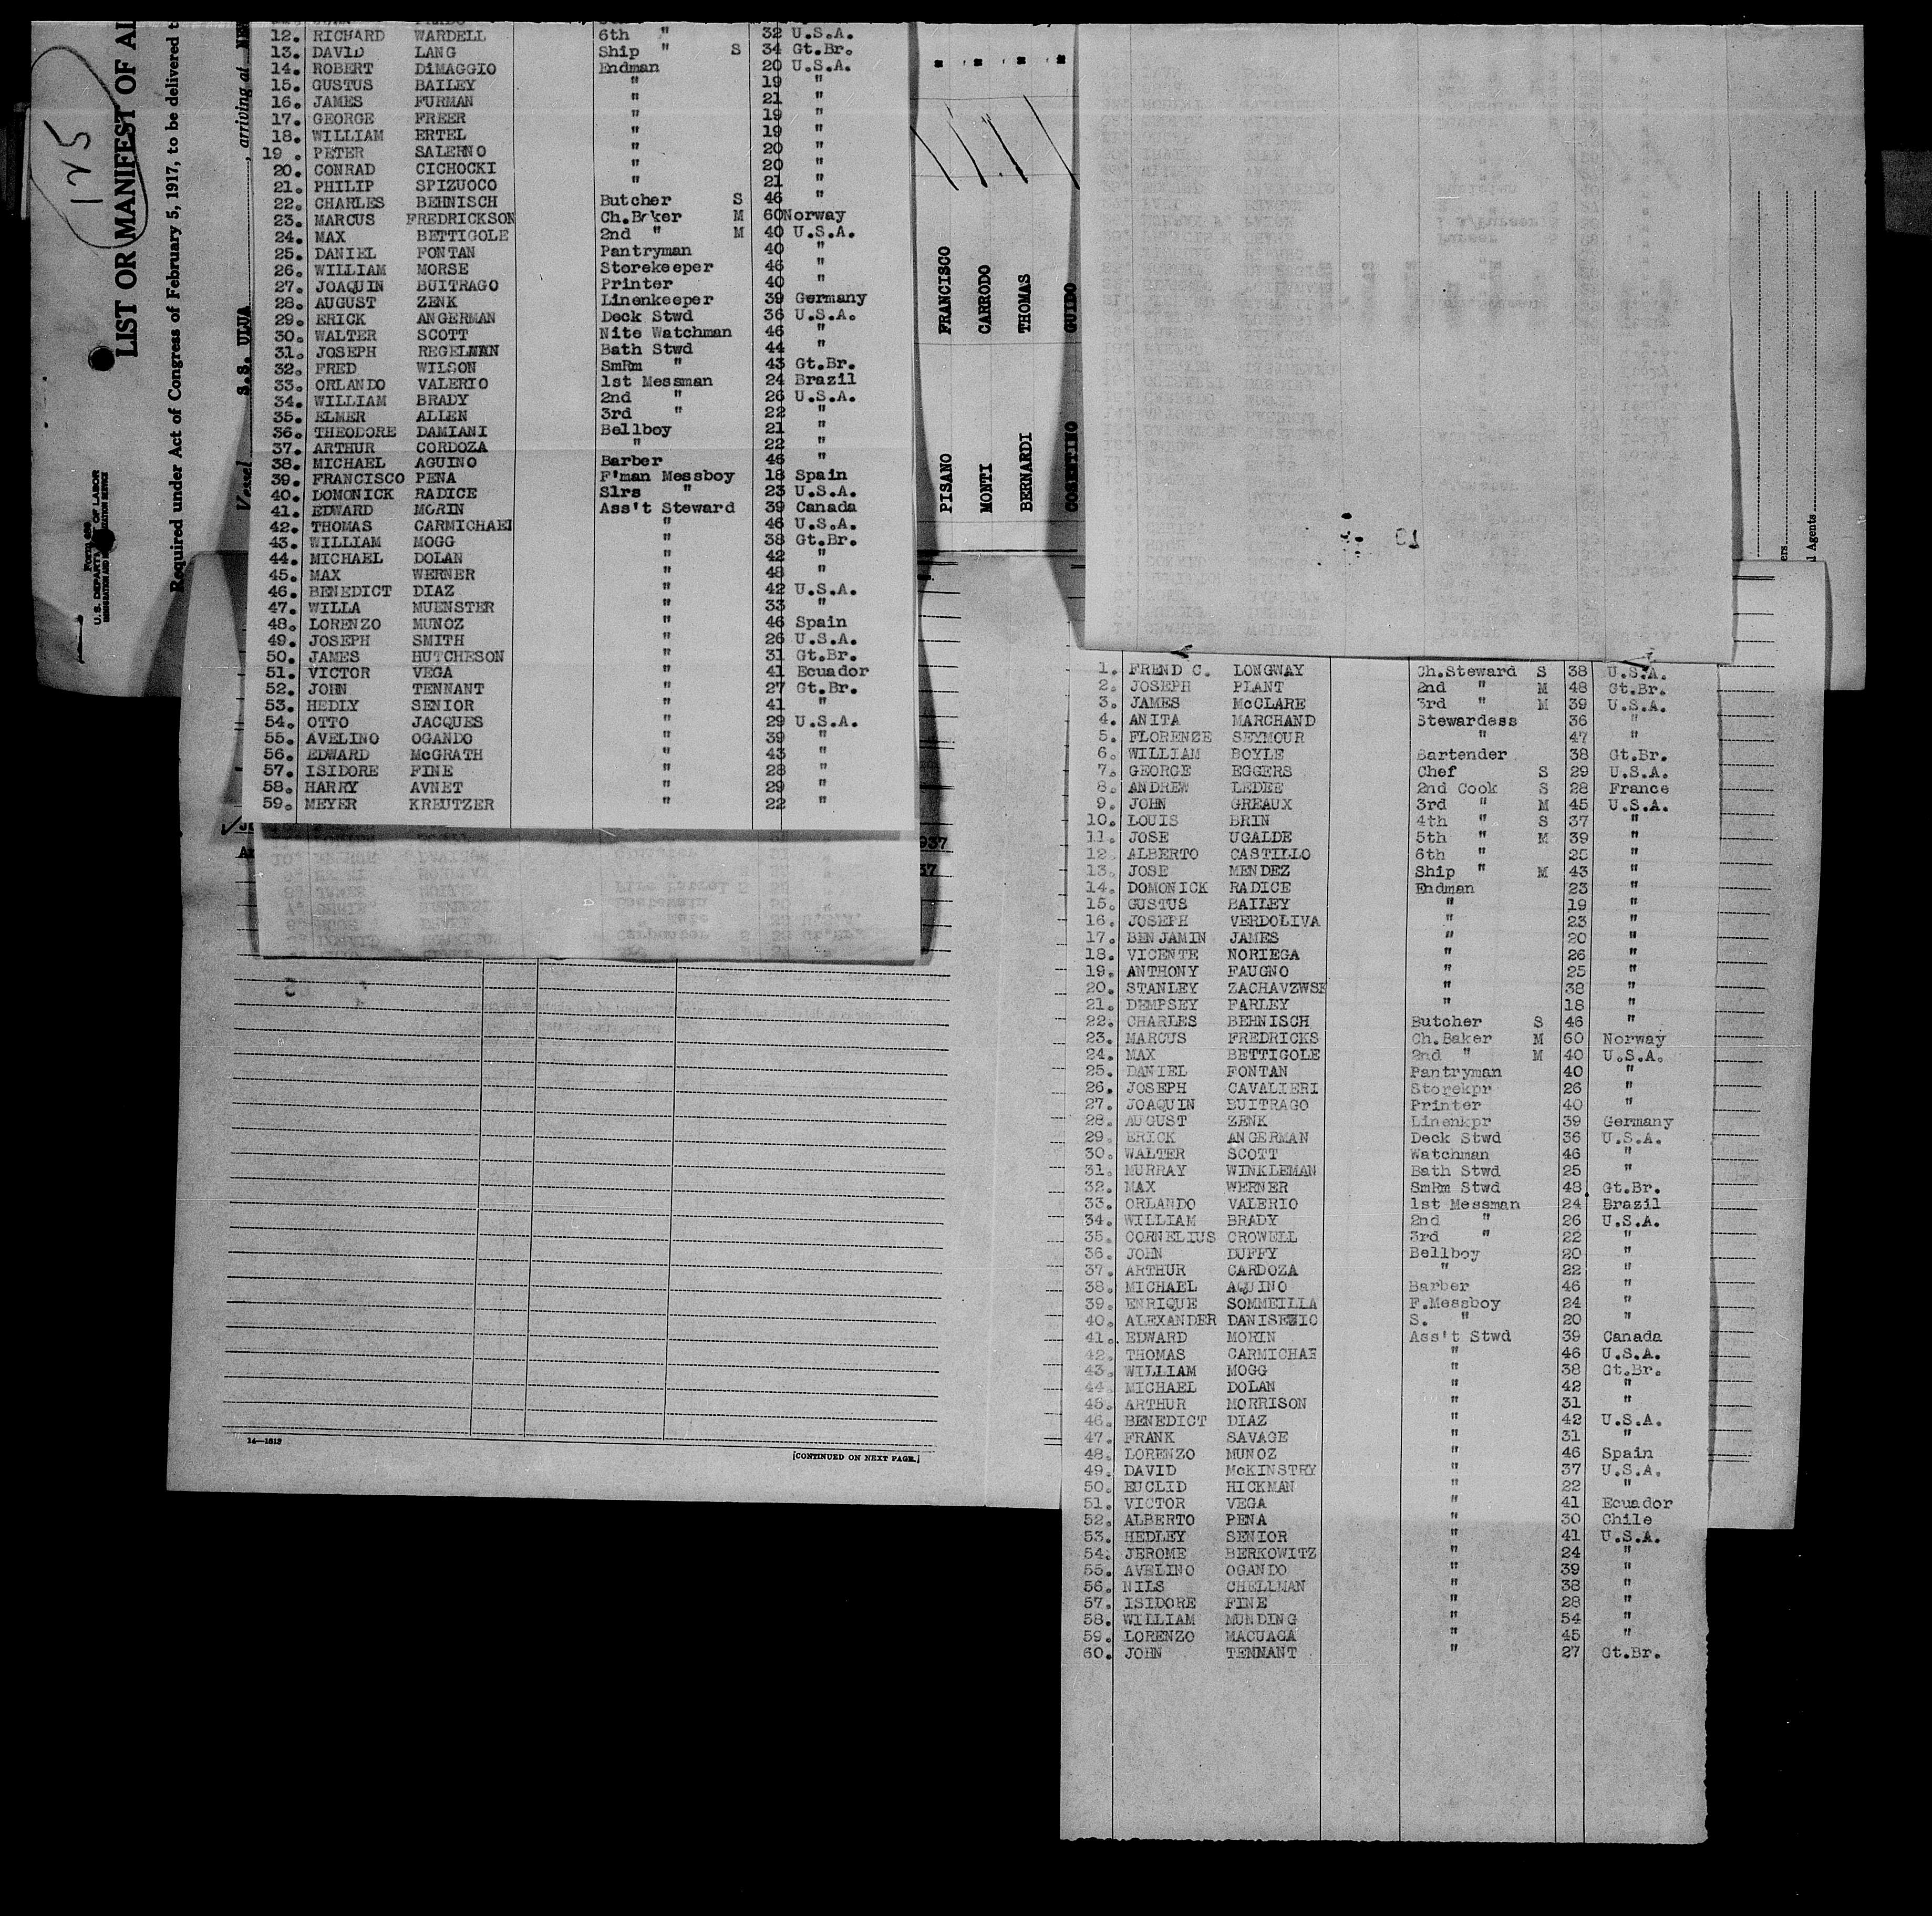 125
LIST OR MANIFEST OF AL
Required under Act of Congress of February 5, 1917, to be delivered t
Vessel S.S. ULUA, arriving at NEW
Form 680
U.S. DEPARTMENT OF LABOR
IMMIGRATION AND NATURALIZATION SERVICE
12. RICHARD WARDELL 6th " 32 U.S.A.
13. DAVID LANG Ship " S 34 Gt.Br.
14. ROBERT DiMAGGIO Endman 20 U.S.A.
15. GUSTUS BAILEY " 19 "
16. JAMES FURMAN " 21 "
17. GEORGE FREER " 19 "
18. WILLIAM ERTEL " 19 "
19 . PETER SALERNO " 20 "
20. CONRAD CICHOCKI " 20 "
21. PHILIP SPIZUOCO " 21 "
22. CHARLES BEHNISCH Butcher S 46 "
23. MARCUS FREDRICKSON Ch.Baker M 60 Norway
24. MAX BETTIGOLE 2nd " M 40 U.S.A.
25. DANIEL FONTAN Pantryman 40 "
26. WILLIAM MORSE Storekeeper 46 "
27. JOAQUIN BUITRAGO Printer 40 "
28. AUGUST ZENK Linenkeeper 39 Germany
29. ERICK ANGERMAN Deck Stwd 36 U.S.A.
30. WALTER SCOTT Nite Watchman 46 "
31. JOSEPH REGELMAN Bath Stwd 44 "
32. FRED WILSON SmRm " 43 Gt.Br.
33. ORLANDO VALERIO 1st Messman 24 Brazil
34. WILLIAM BRADY 2nd " 26 U.S.A.
35. ELMER ALLEN 3rd " 22 "
36. THEODORE DAMIANI Bellboy 21 "
37. ARTHUR CORDOZA " 22 "
38. MICHAEL AGUINO Barber 46 "
39. FRANCISCO PENA F'man Messboy 18 Spain
40. DOMONICK RADICE Slrs " 23 U.S.A.
41. EDWARD MORIN Ass't Steward 39 Canada
42. THOMAS CARMICHAEl " 46 U.S.A.
43. WILLIAM MOGG " 38 Gt.Br.
44. MICHAEL DOLAN " 42 "
45. MAX WERNER " 48 "
46. BENEDICT DIAZ " 42 U.S.A.
47. WILLA MUENSTER " 33 "
48. LORENZO MUNOZ " 46 Spain
49. JOSEPH SMITH " 26 U.S.A.
50. JAMES HUTCHESON " 31 Gt.Br.
51. VICTOR VEGA " 41 Ecuador
52. JOHN TENNANT " 27 Gt.Br.
53. HEDLY SENIOR " 41 "
54. OTTO JACQUES " 29 U.S.A.
55. AVELINO OGANDO " 39 "
56. EDWARD McGRATH " 43 "
57. ISIDORE FINE " 28 "
58. HARRY AVNET " 29 "
59. MEYER KREUTZER " 22 "
937
37
14—1513
[CONTINUED ON NEXT PAGE.]
PISANO FRANCISCO
MONTI CARRODO
BERNARDI THOMAS
COSENTINO GUIDO
ers.
l Agents
1. FREND C. LONGWAY Ch.Steward S 38 U.S.A.
2. JOSEPH PLANT 2nd " M 48 Gt.Br.
3. JAMES McCLARE 3rd " M 39 U.S.A.
4. ANITA MARCHAND Stewardess 36 "
5. FLORENZE SEYMOUR " 47 "
6. WILLIAM BOYLE Bartender 38 Gt.Br.
7. GEORGE EGGERS Chef S 29 U.S.A.
8. ANDREW LEDEE 2nd Cook S 28 France
9. JOHN GREAUX 3rd " M 45 U.S.A.
10. LOUIS BRIN 4th " S 37 "
11. JOSE UGALDE 5th " M 39 "
12. ALBERTO CASTILLO 6th " 25 "
13. JOSE MENDEZ Ship " M 43 "
14. DOMONICK RADICE Endman 23 "
15. GUSTUS BAILEY " 19 "
16. JOSEPH VERDOLIVA " 23 "
17. BENJAMIN JAMES " 20 "
18. VICENTE NORIEGA " 26 "
19. ANTHONY FAUGNO " 25 "
20. STANLEY ZACHAVZWSK " 38 "
21. DEMPSEY FARLEY " 18 "
22. CHARLES BEHNISCH Butcher S 46 "
23. MARCUS FREDRICKS Ch.Baker M 60 Norway
24. MAX BETTIGOLE 2nd " M 40 U.S.A.
25. DANIEL FONTAN Pantryman 40 "
26. JOSEPH CAVALIERI Storekpr 26 "
27. JOAQUIN BUITRAGO Printer 40 "
28. AUGUST ZENK Linenkpr 39 Germany
29. ERICK ANGERMAN Deck Stwd 36 U.S.A.
30. WALTER SCOTT Watchman 46 "
31. MURRAY WINKLEMAN Bath Stwd 25 "
32. MAX WERNER SmRm Stwd 48 Gt.Br.
33. ORLANDO VALERIO 1st Messman 24 Brazil
34. WILLIAM BRADY 2nd " 26 U.S.A.
35. CORNELIUS CROWELL 3rd " 22 "
36. JOHN DUFFY Bellboy 20 "
37. ARTHUR CARDOZA " 22 "
38. MICHAEL AQUINO Barber 46 "
39. ENRIQUE SOMMEILLA F.Messboy 24 "
40. ALEXANDER DANISEZIC S. " 20 "
41. EDWARD MORIN Ass't Stwd 39 Canada
42. THOMAS CARMICHAE " 46 U.S.A.
43. WILLIAM MOGG " 38 Gt.Br.
44. MICHAEL DOLAN " 42 "
45. ARTHUR MORRISON " 31 "
46. BENEDICT DIAZ " 42 U.S.A.
47. FRANK SAVAGE " 31 "
48. LORENZO MUNOZ " 46 Spain
49. DAVID McKINSTRY " 37 U.S.A.
50. EUCLID HICKMAN " 22 "
51. VICTOR VEGA " 41 Ecuador
52. ALBERTO PENA " 30 Chile
53. HEDLEY SENIOR " 41 U.S.A.
54. JEROME BERKOWITZ " 24 "
55. AVELINO OGANDO " 39 "
56. NILS CHELLMAN " 38 "
57. ISIDORE FINE " 28 "
58. WILLIAM MUNDING " 54 "
59. LORENZO MACUAGA " 45 "
60. JOHN TENNANT " 27 Gt.Br.